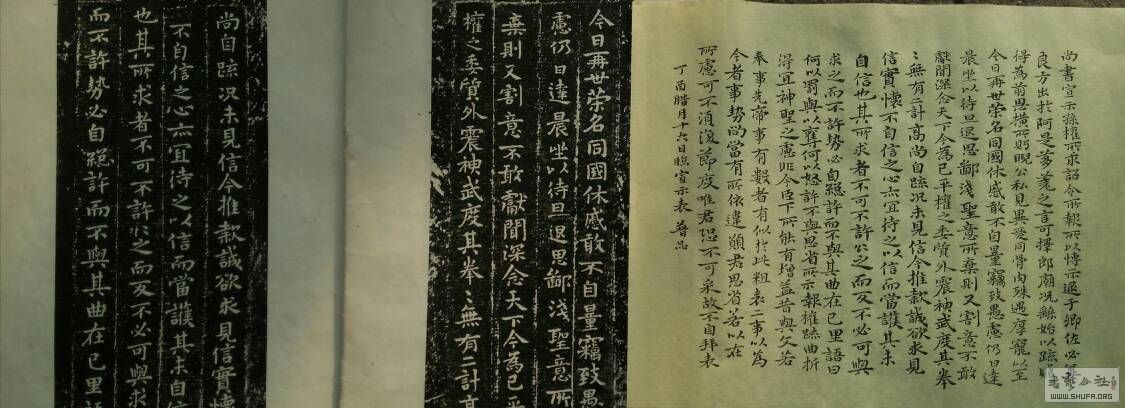 尚書宣示孫權所求詔令所報所以博示逮于卿佐必冀
良方出於阿是芻蕘之言可擇郎廟況繇始以疏賤
得為前恩橫所眄睨公私見異愛同骨肉殊遇厚寵以至
今日再世榮名同國休慼敢不自量竊致愚慮仍日達
晨坐以待旦退思鄙淺聖意所棄則又割意不敢
獻聞深念天下今為已平權之委質外震神武度其拳
〻無有二計高尚自疏況未見信今推款誠欲求見
信實懷不自信之心亦宜待之以信而當護其未
自信也其所求者不可不許許之而反不必可與
求之而不許勢必自絕許而不與其曲在己里語曰
何以罰與以奪何以怒許不與思省所示報權疏曲折
得宜神聖之慮非今臣下所能有增益昔與文若
奉事先帝事有數者有似於此粗表二事以為
今者事勢尚當有所依違願君思省若以在
所慮可不須復節度唯君恐不可采故不自拜表
丁酉腊月十六日臨宣示表
今日再世榮名同國休慼敢不自量竊致愚
慮仍日達晨坐以待旦退思鄙淺聖意所
棄則又割意不敢獻聞深念天下今為已平
權之委質外震神武度其拳〻無有二計高
尚自疏況未見信今推款誠欲求見信實懷
不自信之心亦宜待之以信而當護其未自信
也其所求者不可不許許之而反不必可與求
而不許勢必自絕許而不與其曲在己里語
書藝公社
WWW.SHUFA.ORG